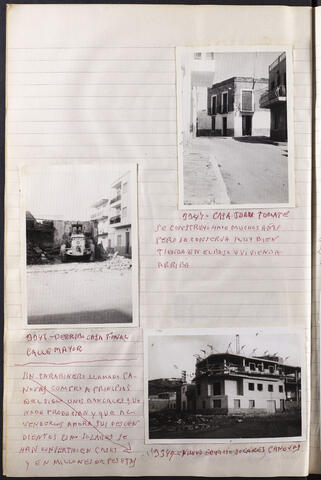 3947- CASA JUAN TOMATE
SE CONSTRUYO HACE MUCHOS AÑOS
PERO SE CONSERVA MUY BIEN
TIENDA EN EL BAJO Y VIVIENDA
ARRIBA
3948- DERRIBO CASA FINAL
CALLE MAYOR
UN CARABINERO LLAMADO CA-
NOVAS COMPRO A PRINCIPIOS
DEL SIGLO UNOS BANCALES QUE
NADA PRODUCIAN Y QUE AL
VENDERLOS AHORA SUS DESCEN
DIENTES COMO SOLARES SE
HAN CONVERTIDO EN CASAS
Y EN MILLONES DE PESETAS
3949- NUEVO EDIFICIO SOLARES CANOVAS